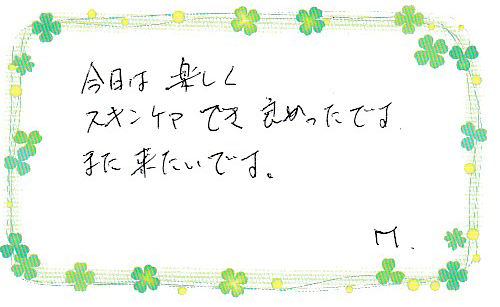 今日は楽しく
スキンケアでき良かったです
また来たいです。
M.